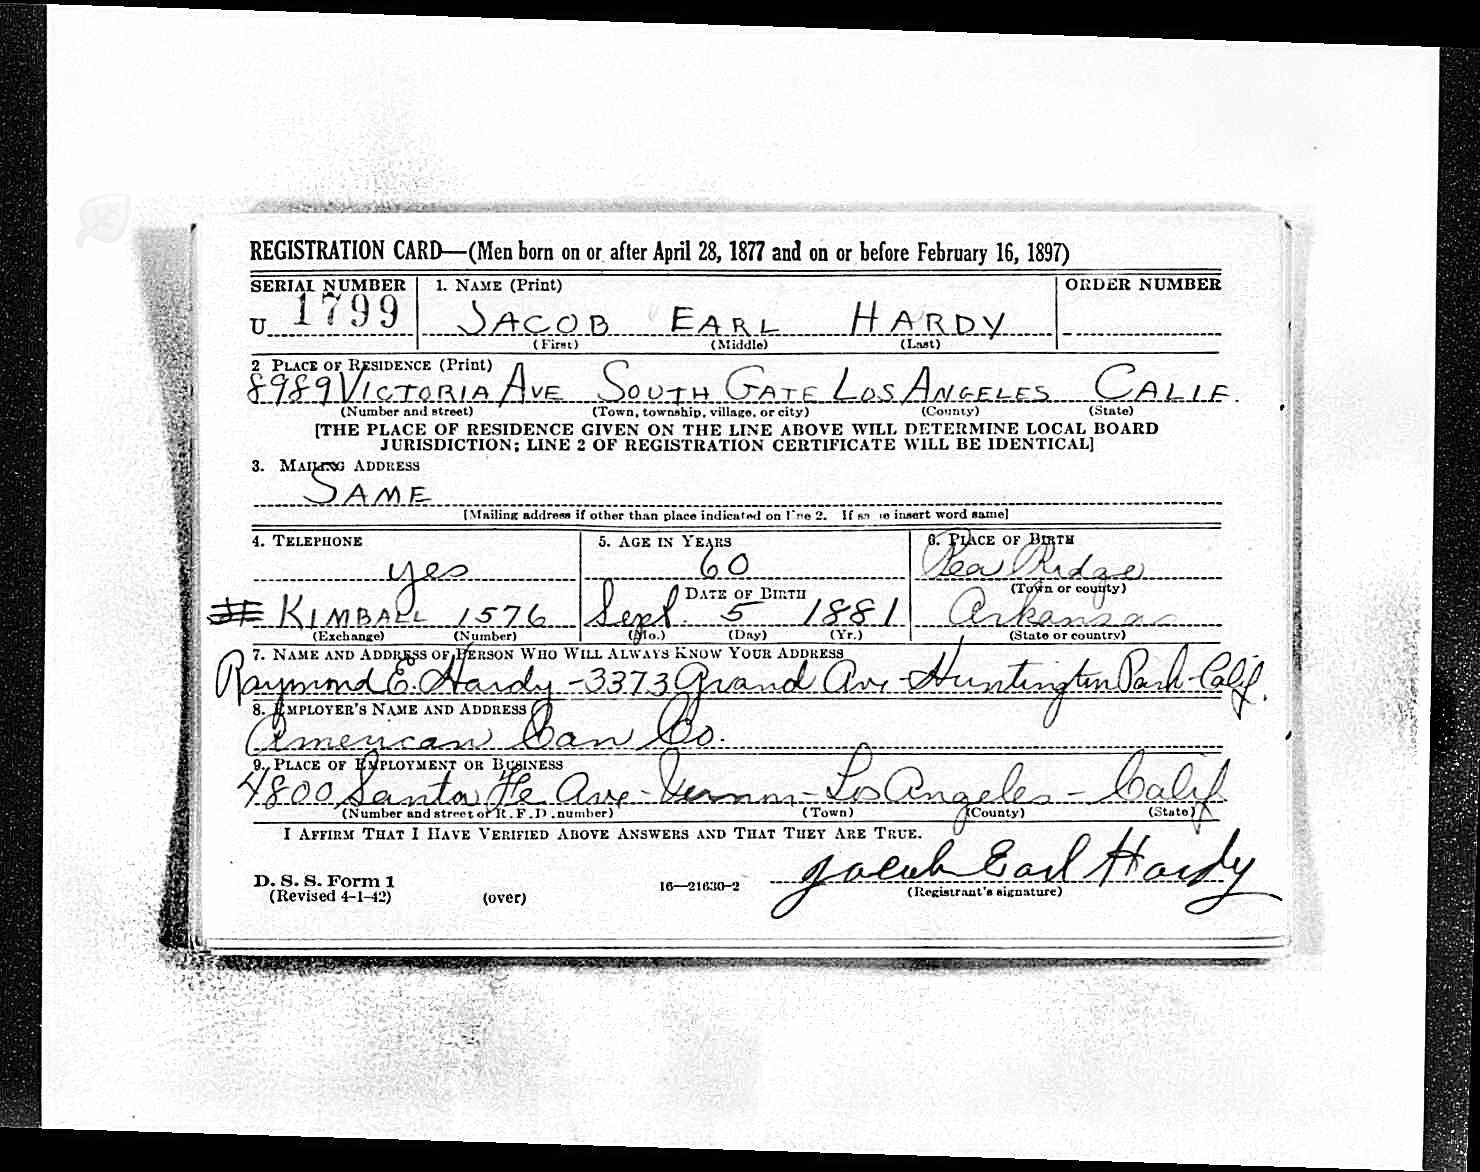 REGISTRATION CARD—(Men born on or after April 28, 1877 and on or before February 16, 1897)
SERIAL NUMBER 1. NAME (Print) ORDER NUMBER
U 1799 JACOB EARL HARDY
(First) (Middle) (Last)
2 PLACE OF RESIDENCE (Print)
8989 VICTORIA AVE SOUTH GATE LOS ANGELES CALIF.
(Number and street) (Town, township, village, or city) (County) (State)
[THE PLACE OF RESIDENCE GIVEN ON THE LINE ABOVE WILL DETERMINE LOCAL BOARD
JURISDICTION; LINE 2 OF REGISTRATION CERTIFICATE WILL BE IDENTICAL]
3. MAILING ADDRESS
SAME
[Mailing address if other than place indicated on line 2. If same insert word same]
4. TELEPHONE 5. AGE IN YEARS 6. PLACE OF BIRTH
yes 60 Pea Ridge
DATE OF BIRTH (Town or county)
KIMBALL 1576 Sept. 5 1881 Arkansas
(Exchange) (Number) (Mo.) (Day) (Yr.) (State or country)
7. NAME AND ADDRESS OF PERSON WHO WILL ALWAYS KNOW YOUR ADDRESS
Raymond E. Hardy - 3373 Grand Ave - Huntington Park - Calif.
8. EMPLOYER'S NAME AND ADDRESS
American Can Co.
9. PLACE OF EMPLOYMENT OR BUSINESS
4800 Santa Fe Ave - Vernon - Los Angeles - Calif
(Number and street or R. F. D. number) (Town) (County) (State)
I AFFIRM THAT I HAVE VERIFIED ABOVE ANSWERS AND THAT THEY ARE TRUE.
Jacob Earl Hardy
D. S. S. Form 1 16—21630-2 (Registrant's signature)
(Revised 4-1-42) (over)